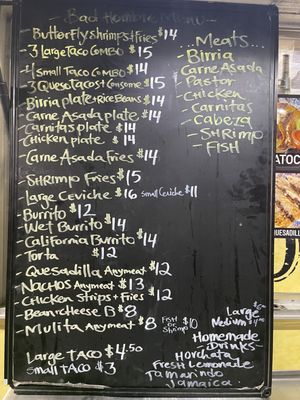 Bad Hombre Menu
- Butterfly Shrimps & Fries $14
- 3 Large Taco Combo $15
- 4 Small Taco Combo $14
- 3 Quesotacos + Consome $15
- Birria plate + Rice Beans $14
- Carne Asada plate $14
- Carnitas plate $14
- Chicken plate $14
- Carne Asada Fries $14
- Shrimp Fries $15
- Large Ceviche $16 Small Ceviche $11
- Burrito $12
- Wet Burrito $14
- California Burrito $14
- Torta $12
- Quesadilla Any meat $12
- Nachos Any meat $13
- Chicken Strips + Fries $12
- Bean & Cheese B $8
- Mulita Any meat $8 Fish or Shrimp $10
Large Taco $4.50
Small Taco $3
Meats
- Birria
- Carne Asada
- Pastor
- Chicken
- Carnitas
- Cabeza
- Shrimp
- Fish
Large
Medium
Homemade
- Drinks -
Horchata
Fresh Lemonade
Tamarindo
Jamaica